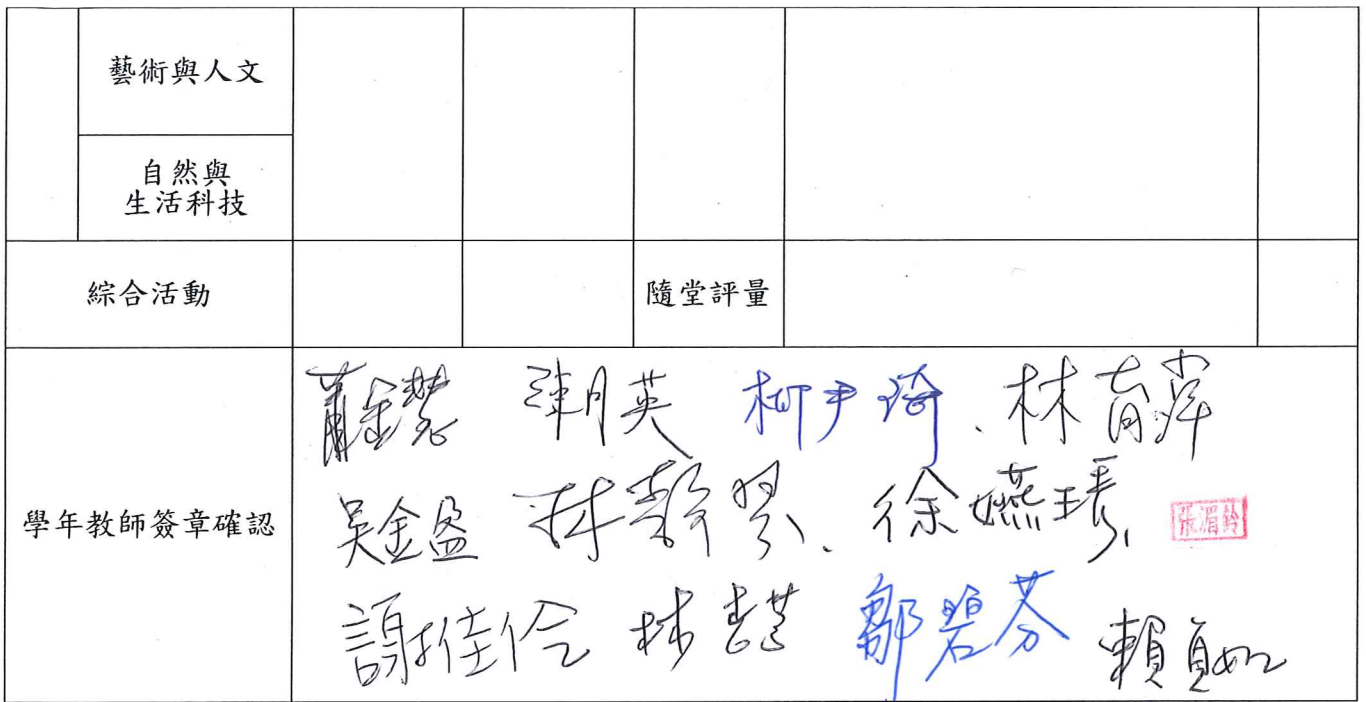 藝術與人文
自然與
生活科技
綜合活動 隨堂評量
學年教師簽章確認
陳月英 柳尹琦、林育萍
吳金盈 徐嬿 張湄鈴
謝佳伶 林 鄒碧芬 賴貞如